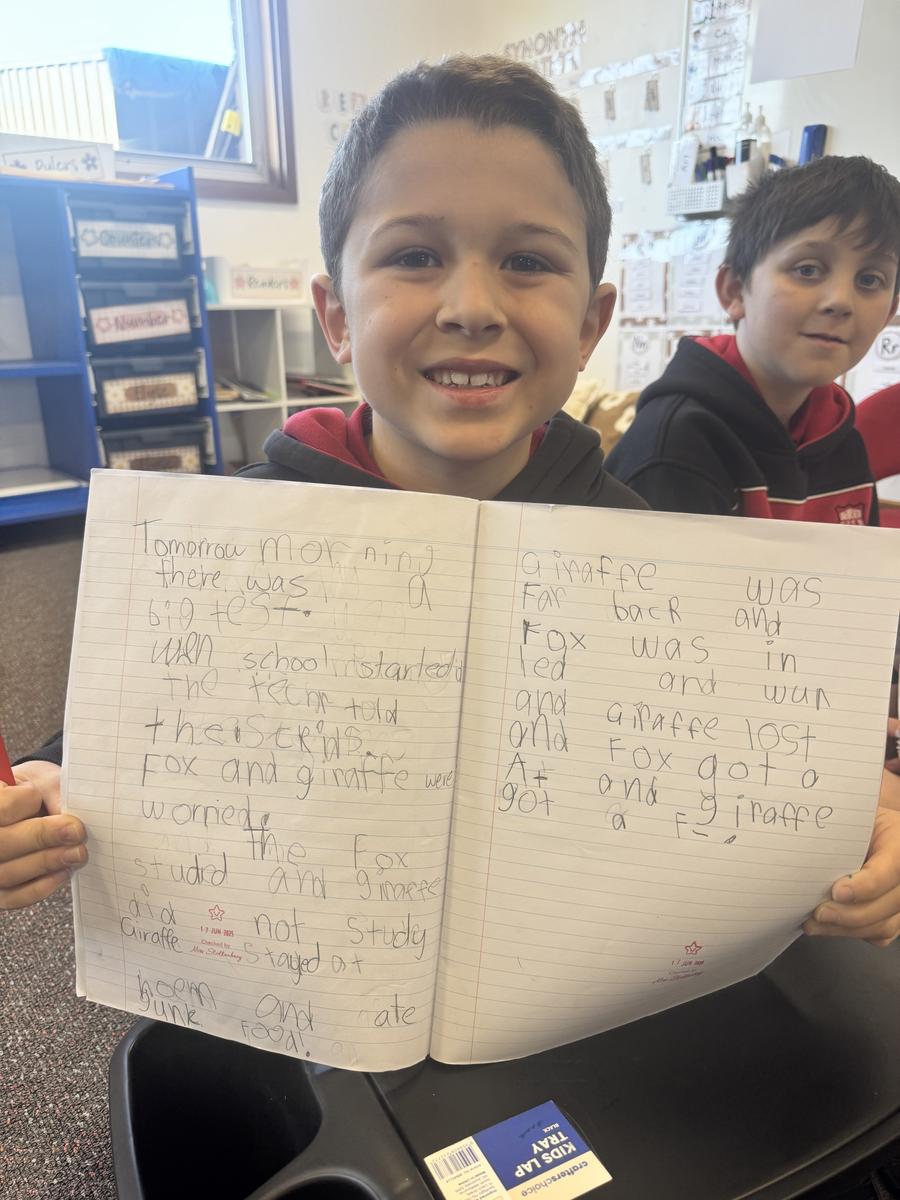 Rulers
Readers
Number
SYNONYM
Rr
Tomorrow morning
there was a
big test.
wen school started
the techr told
Fox and giraffe were
worried.
the Fox
studrd and giraffe
did not Study
Giraffe Stayed at
hoem and ate
Junk Food!
17 JUN 2025
Checked by
giraffe was
Far back and
Fox was in
led and wun
and giraffe lost
and Fox got a
A+ and giraffe
got a F-.
17 JUN 2025
Checked by
crafterschoice
KIDS LAP
TRAY
BLACK